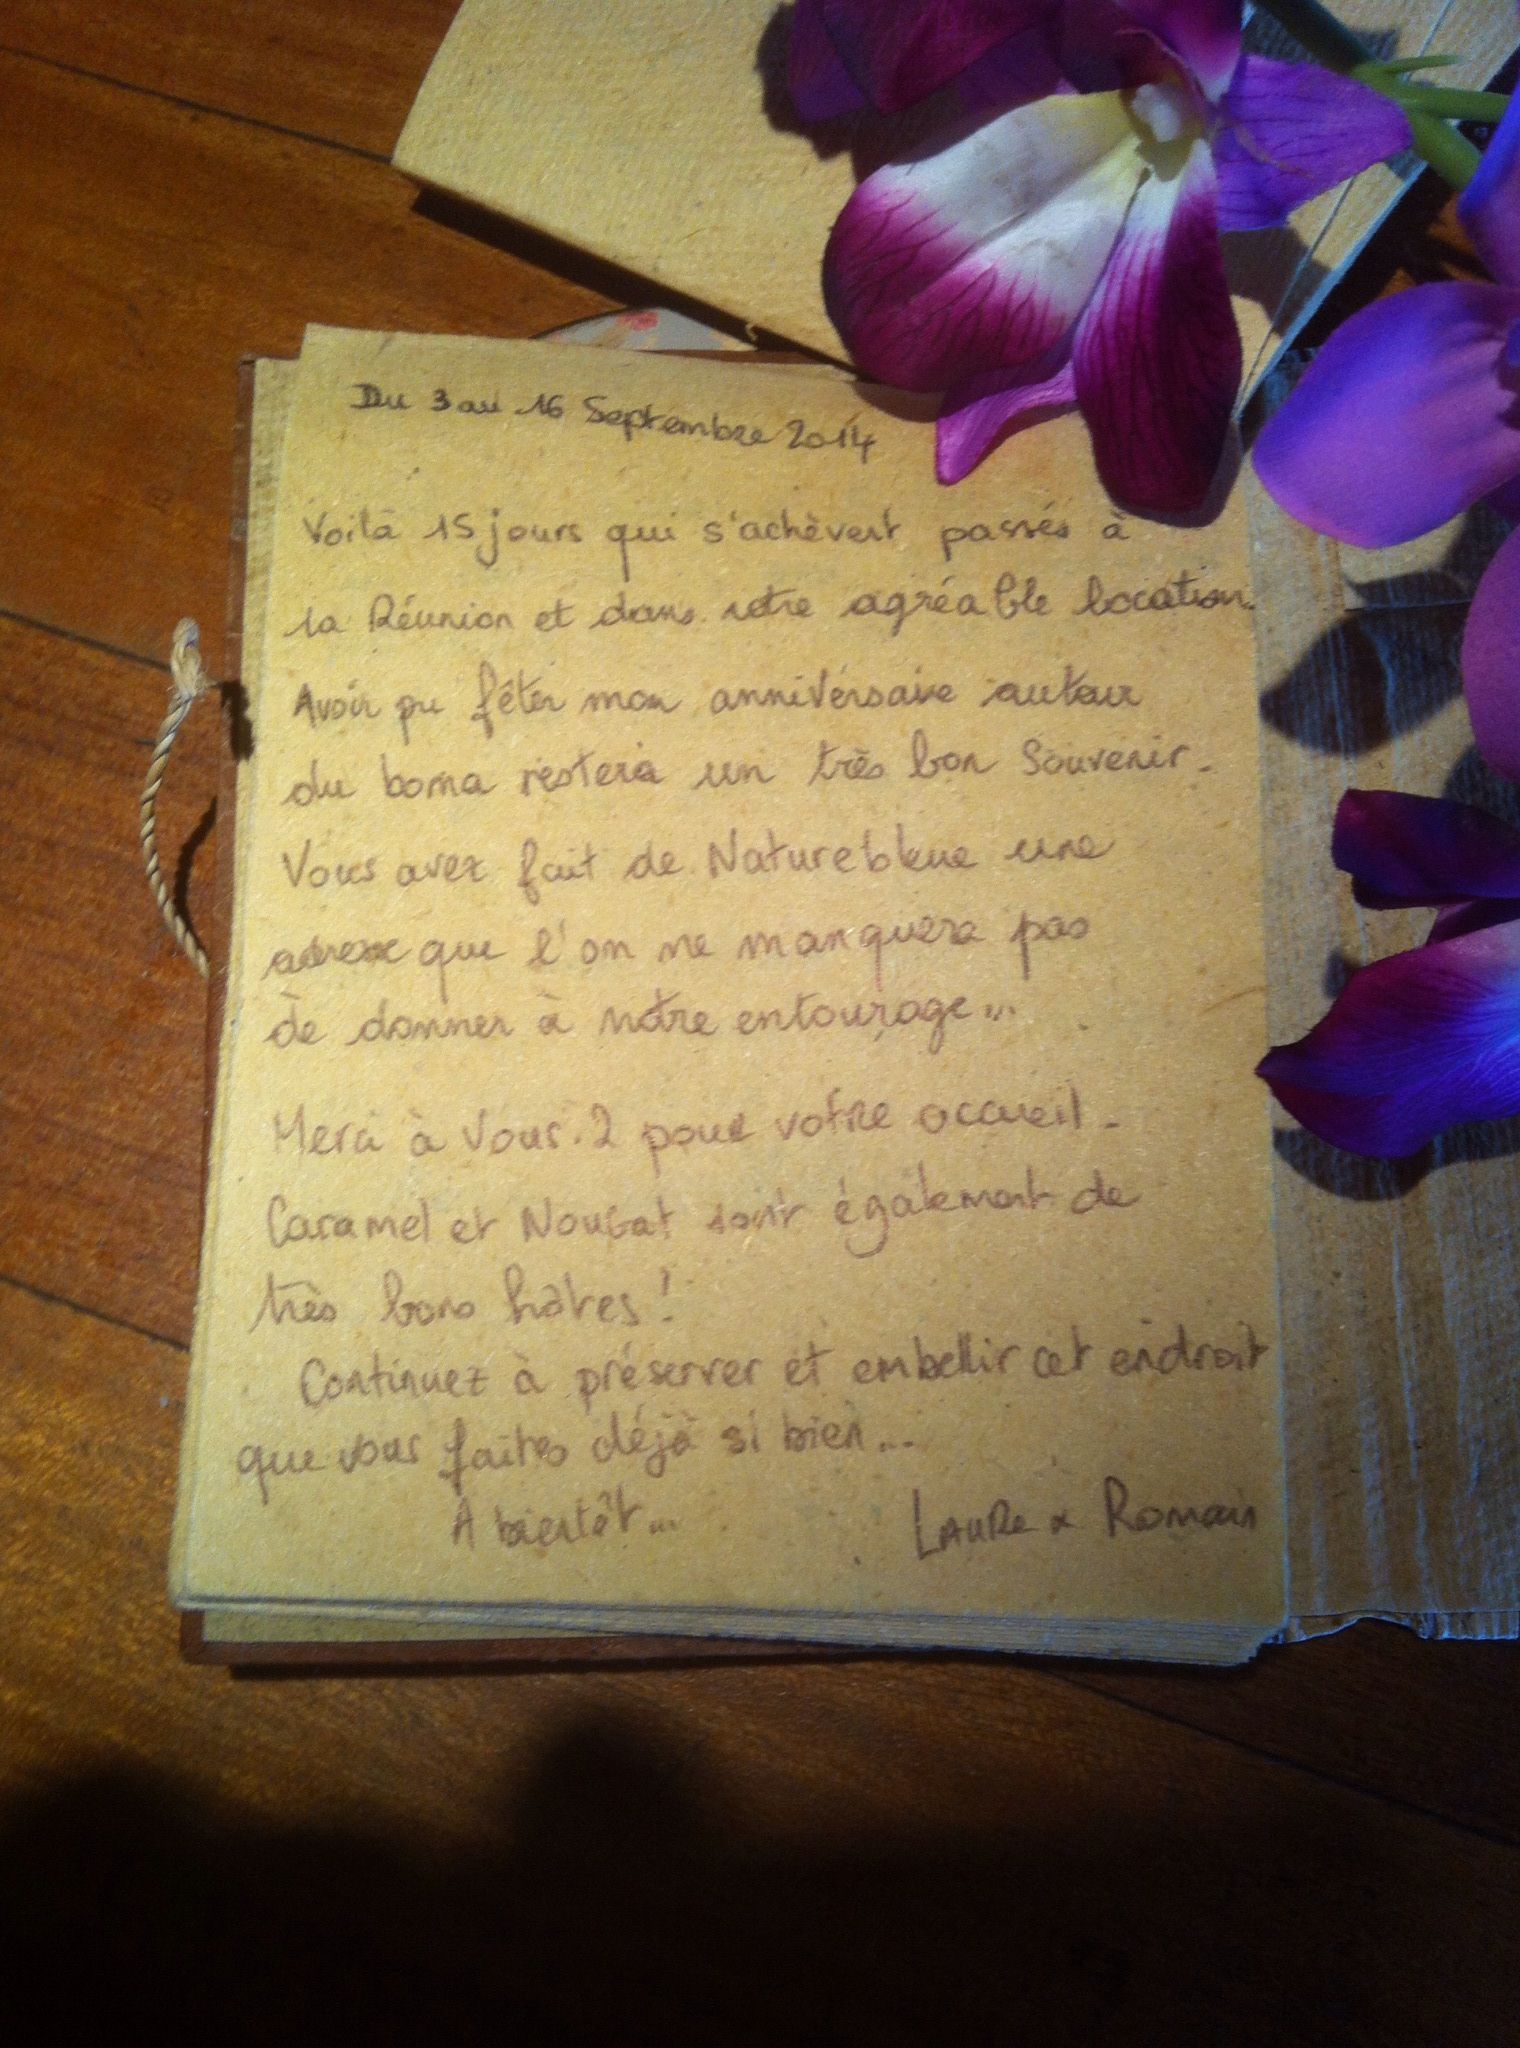 Du 3 au 16 Septembre 2014
Voilà 15 jours qui s'achèvent passés à
la Réunion et dans votre agréable location.
Avoir pu fêter mon anniversaire autour
du boma restera un très bon souvenir.
Vous avez fait de Naturebleue une
adresse que l'on ne manquera pas
de donner à notre entourage...
Merci à vous 2 pour votre accueil.
Caramel et Nougat sont également de
très bons hôtes !
Continuez à préserver et embellir cet endroit
que vous faites déjà si bien...
A bientôt...
LAURe & Romain